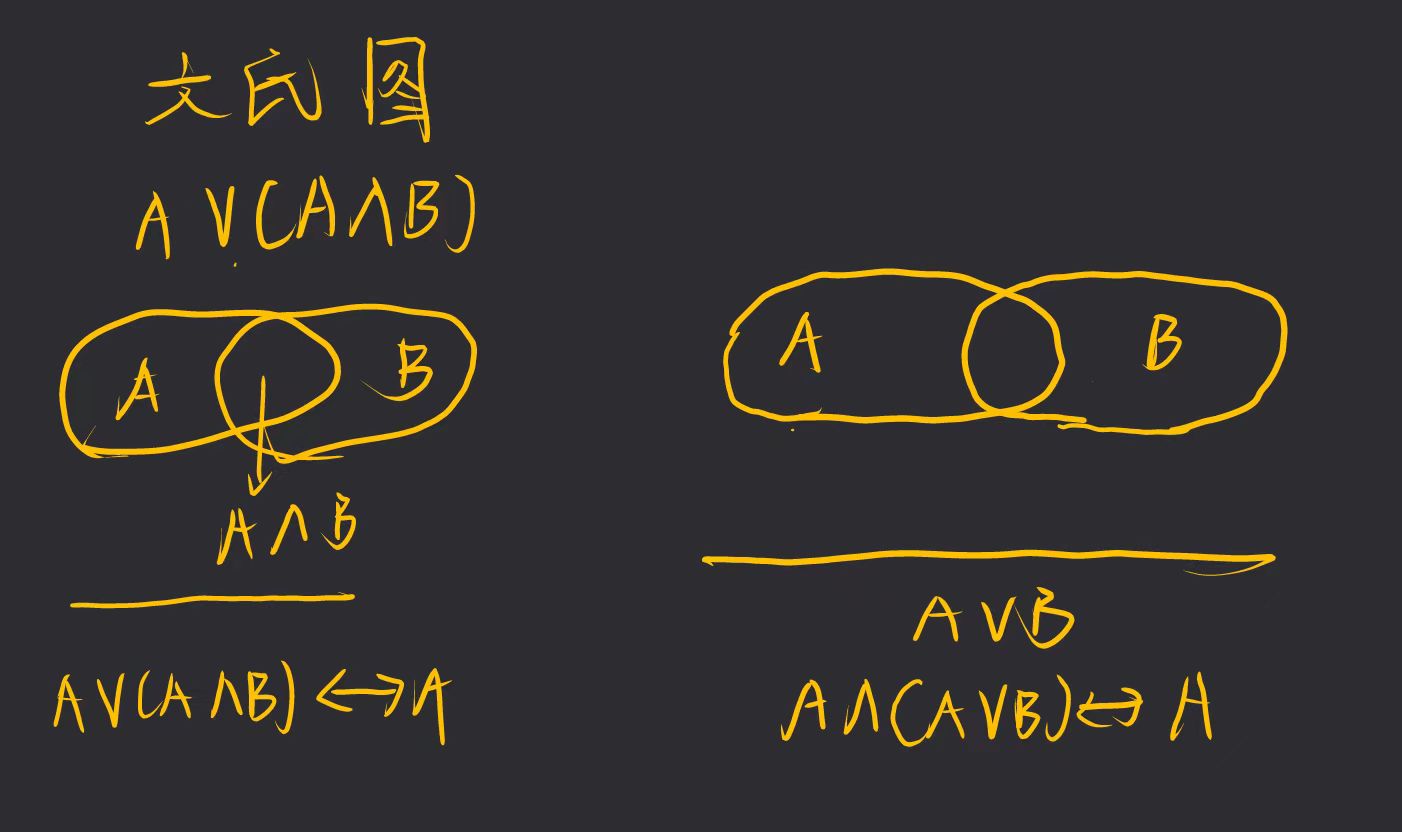 文氏图
A ∨ (A ∧ B)
A B
A ∧ B
A ∨ (A ∧ B) ↔ A
A B
A ∨ B
A ∧ (A ∨ B) ↔ A